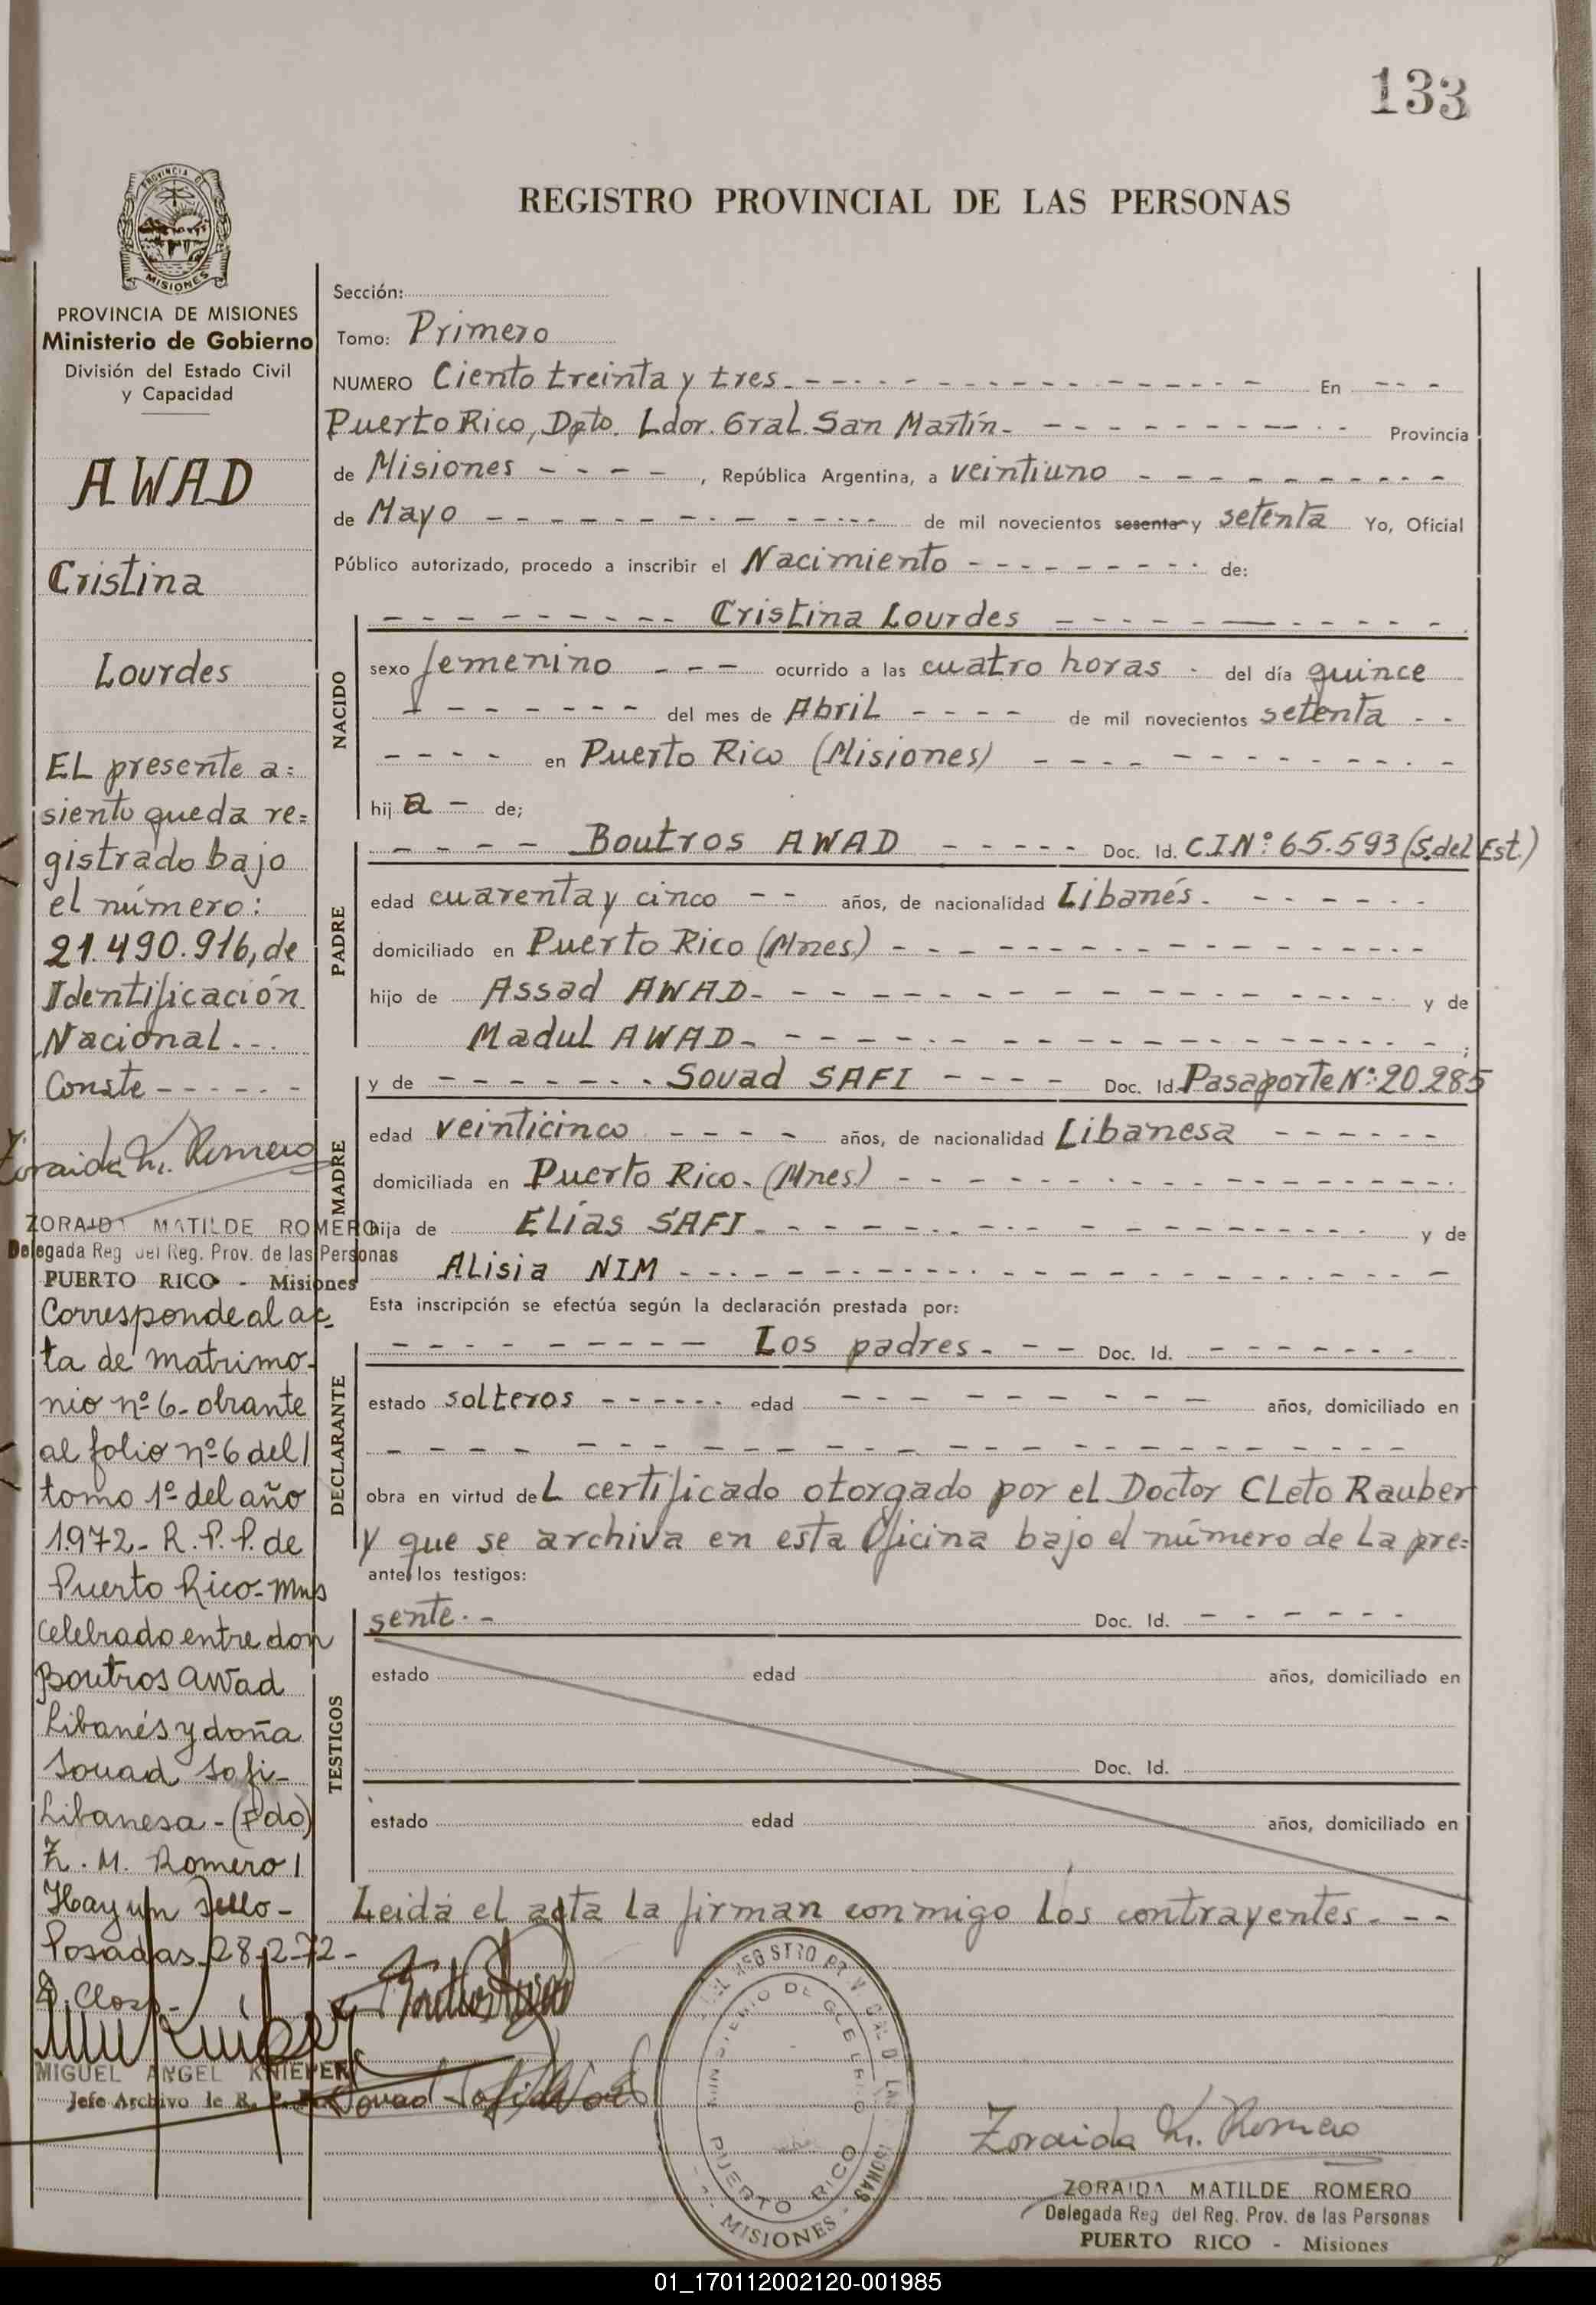 133
REGISTRO PROVINCIAL DE LAS PERSONAS
PROVINCIA DE
MISIONES
PROVINCIA DE MISIONES
Ministerio de Gobierno
División del Estado Civil
y Capacidad
AWAD
Cristina
Lourdes
EL presente a=
siento queda re=
gistrado bajo
el número:
21.490.916, de
Identificación
Nacional - - .
Conste - - - - - -
Zoraida M. Romero
ZORAIDA MATILDE ROMERO
Delegada Reg del Reg. Prov. de las Personas
PUERTO RICO - Misiones
Corresponde al ac-
ta de matrimo-
nio nº 6- obrante
al folio nº 6 del /
tomo 1º del año
1972- R. P. P. de
Puerto Rico- Mns
celebrado entre don
Boutros Awad
Libanés y doña
Souad Safi-
Libanesa - (Fdo)
Z. M. Romero /
Hay un sello-
Posadas 28-2-72-
MIGUEL ANGEL KNIEPER
Jefe Archivo de R. P. P.
Sección:
Tomo: Primero
NUMERO Ciento treinta y tres. - - - En - - -
Puerto Rico, Dpto. Ldor. Gral. San Martín- - - - Provincia
de Misiones - - - - , República Argentina, a veintiuno - - - -
de Mayo - - - - de mil novecientos sesenta y setenta Yo, Oficial
Público autorizado, procedo a inscribir el Nacimiento - - - - de:
NACIDO
- - - - Cristina Lourdes - - - -
sexo femenino - - - ocurrido a las cuatro horas - del día quince
- - - - del mes de Abril - - - - de mil novecientos setenta - -
- - - - en Puerto Rico (Misiones) - - - -
hij a - de;
PADRE
- - - - Boutros AWAD - - - - Doc. Id. C.I Nº: 65.593 (S.del Est.)
edad cuarenta y cinco - - años, de nacionalidad Libanés. - - - -
domiciliado en Puerto Rico (Mnes.) - - - -
hijo de Assad AWAD- - - - - y de
Madul AWAD- - - - - ;
MADRE
y de - - - - Souad SAFI - - - - Doc. Id. Pasaporte Nº: 20.285
edad veinticinco - - - - años, de nacionalidad Libanesa - - - -
domiciliada en Puerto Rico- (Mnes.) - - - -
hija de ELías SAFI- - - - - y de
ALisia NIM - - - -
Esta inscripción se efectúa según la declaración prestada por:
DECLARANTE
- - - - Los padres - - - Doc. Id. - - - -
estado solteros - - - - edad - - - - años, domiciliado en
- - - -
obra en virtud de L certificado otorgado por el Doctor CLeto Rauber
y que se archiva en esta Oficina bajo el número de La pre=
ante los testigos:
TESTIGOS
sente. - Doc. Id. - - - -
estado edad años, domiciliado en
Doc. Id.
estado edad años, domiciliado en
Leida el acta la firman conmigo los contrayentes. - -
MINISTERIO DE GOBIERNO
PUERTO RICO
MISIONES
Zoraida M. Romero
ZORAIDA MATILDE ROMERO
Delegada Reg del Reg. Prov. de las Personas
PUERTO RICO - Misiones
01_170112002120-001985